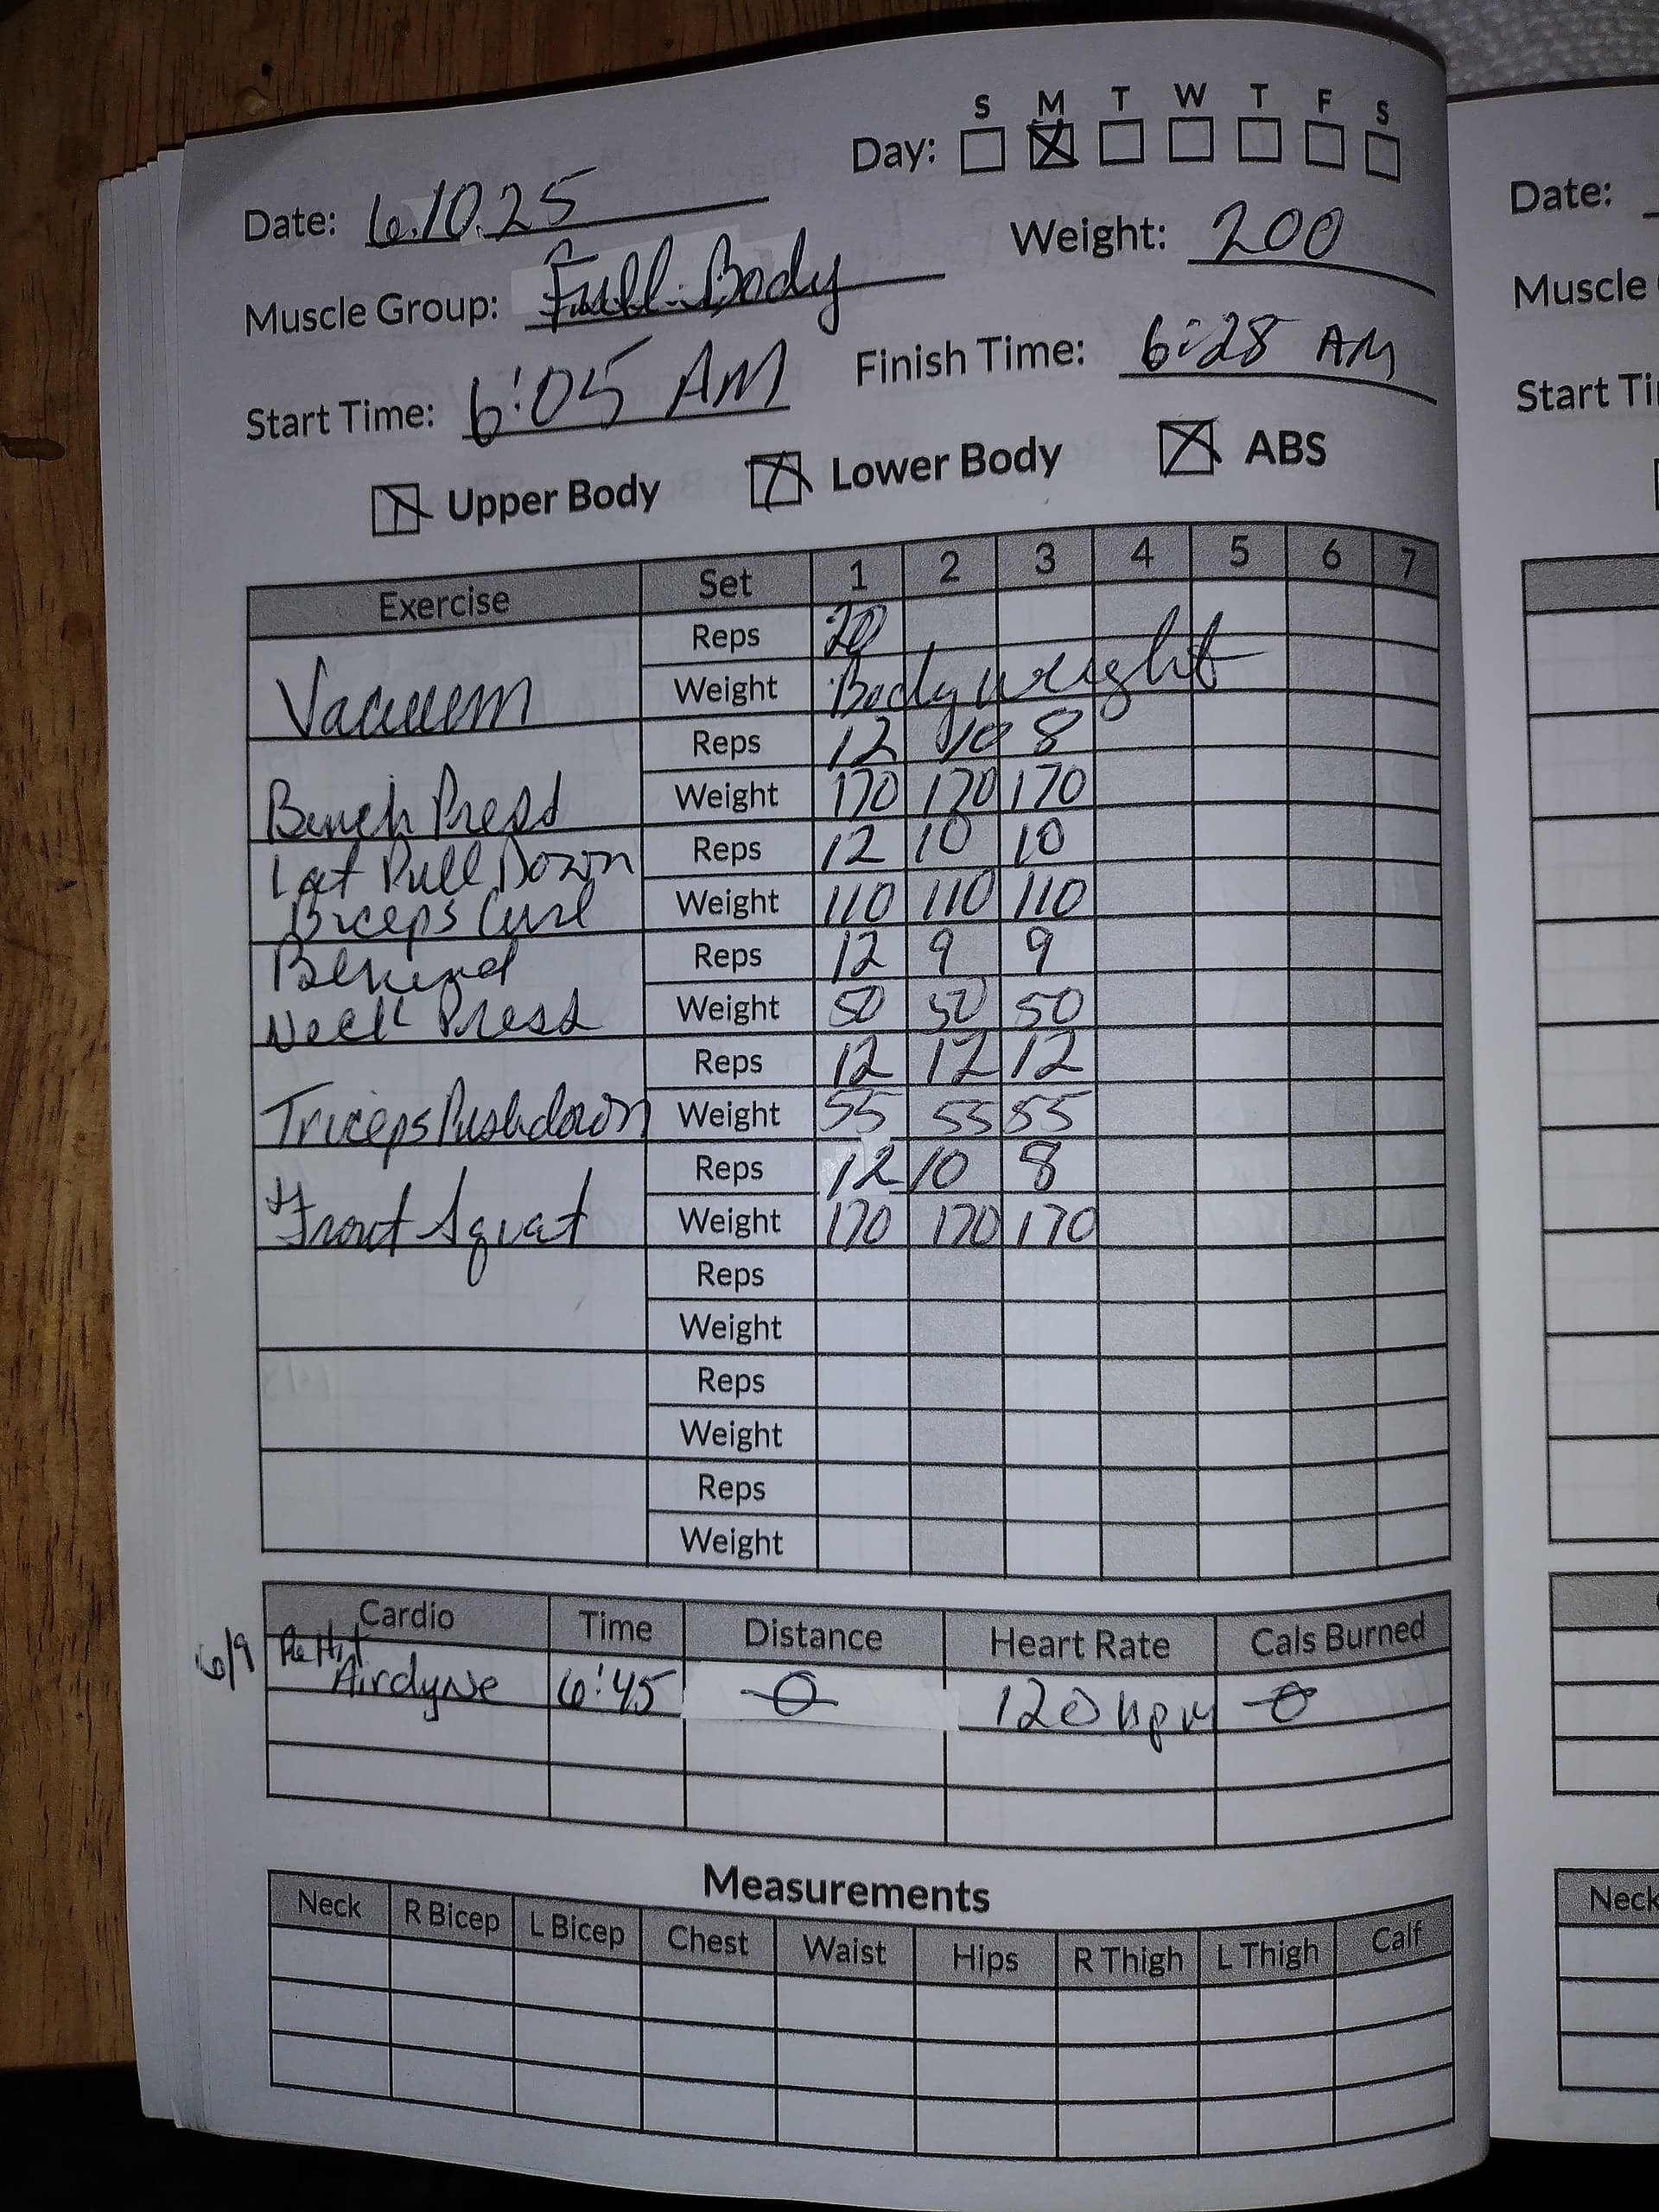 S M T W T F S
Day:
Date: 6.10.25
Weight: 200
Muscle Group: Full-Body
Start Time: 6:05 AM Finish Time: 6:28 AM
Upper Body Lower Body ABS
Exercise Set 1 2 3 4 5 6 7
Vacuum Reps 20
Weight Bodyweight
Bench Press Reps 12 10 8
Weight 170 170 170
Lat Pull Down Reps 12 10 10
Biceps Curl Weight 110 110 110
Behind Reps 12 9 9
Neck Press Weight 50 50 50
Reps 12 12 12
Triceps Pushdown Weight 55 55 55
Reps 12 10 8
Front Squat Weight 170 170 170
Reps
Weight
Reps
Weight
Reps
Weight
Cardio Time Distance Heart Rate Cals Burned
6/9 Airdyne 6:45 0 120 0
Measurements
Neck R Bicep L Bicep Chest Waist Hips R Thigh L Thigh Calf
Date:
Muscle
Start Ti
Neck